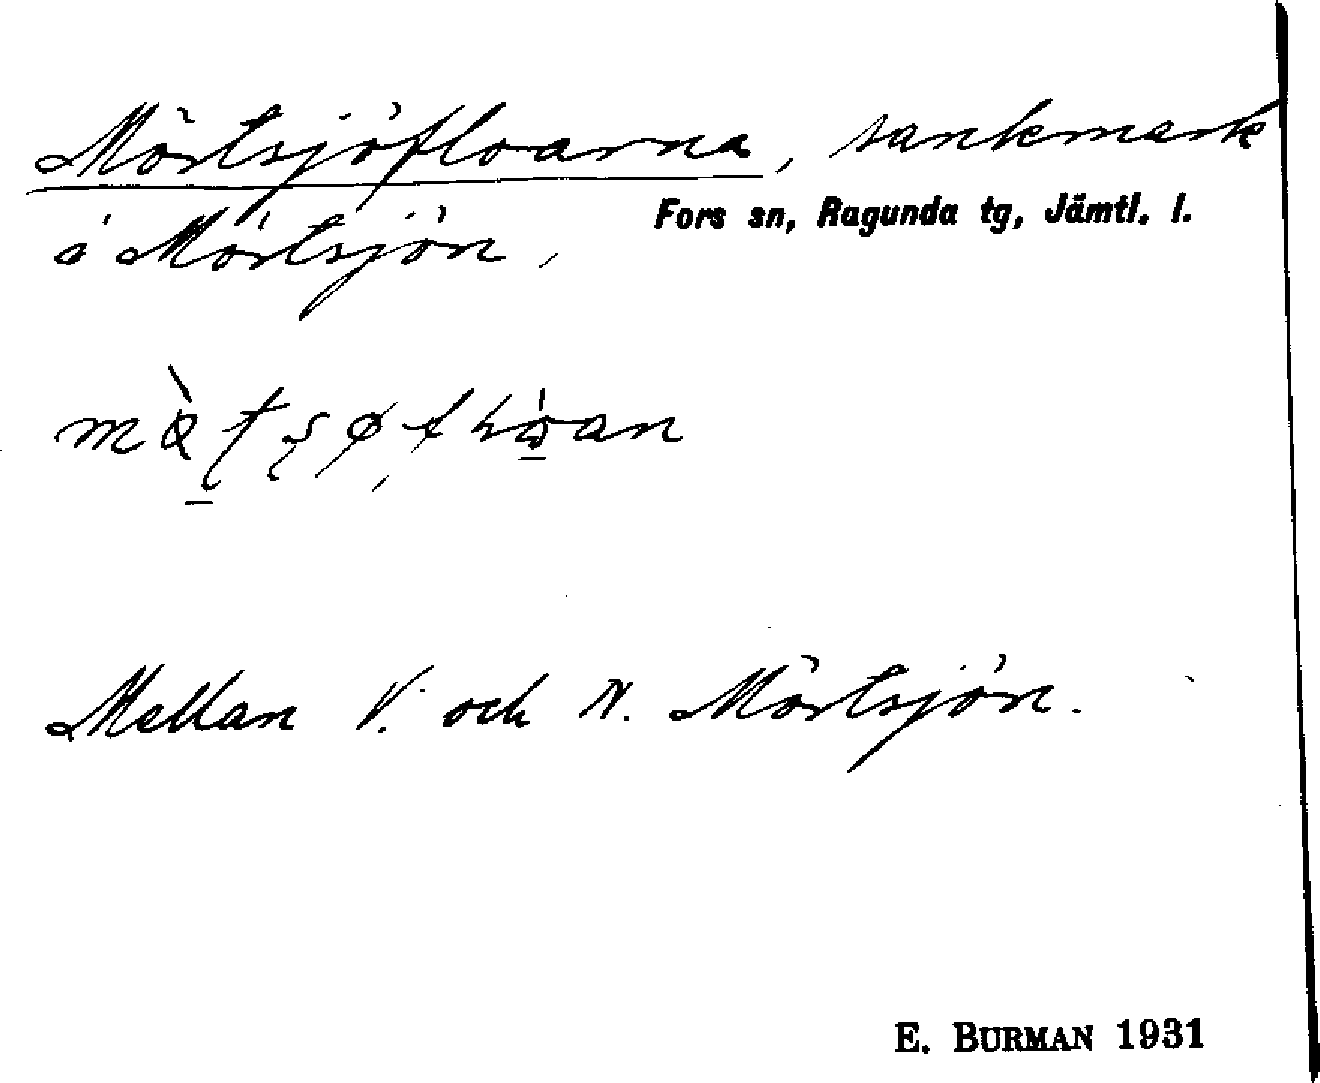 Mörtsjöfloarna, sankmark
Fors sn, Ragunda tg, Jämtl. l.
å Mörtsjön,
Mellan V. och N. Mörtsjön.
E. BURMAN 1931